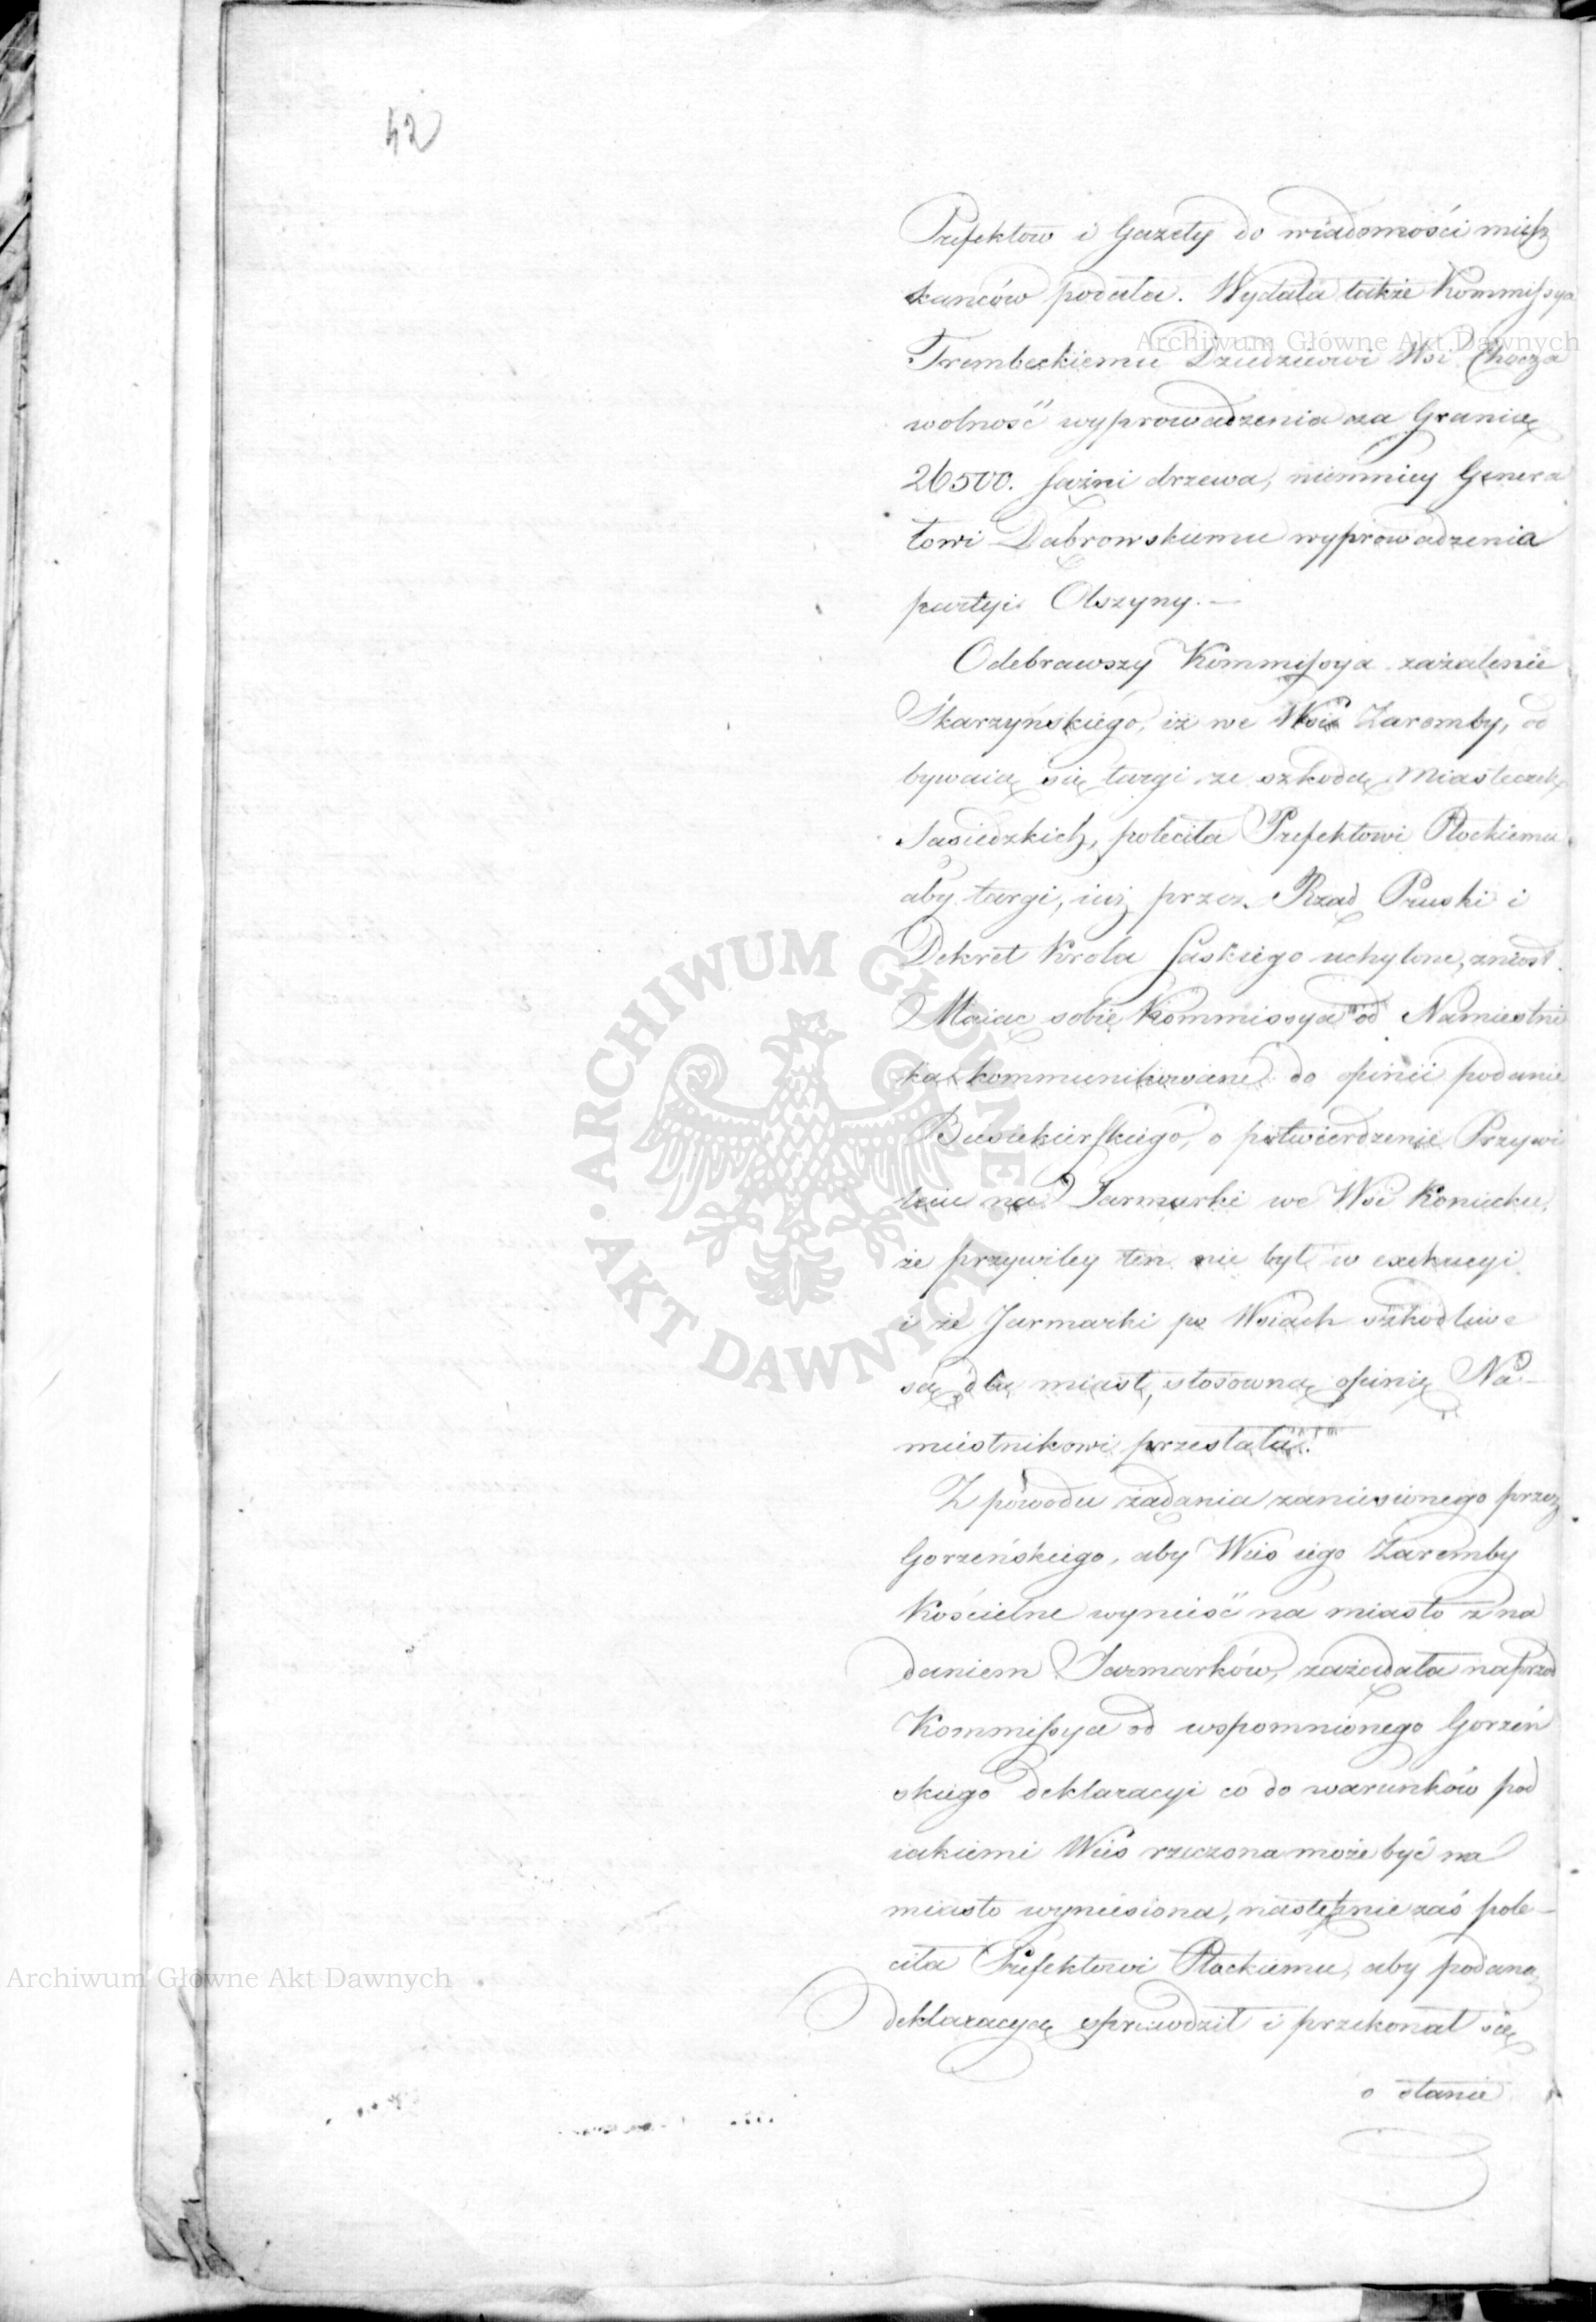 42
Prefektow i Gazety do wiadomości miesz
kańców podała. Wydała także Kommissya
Trembeckiemu Dziedzicowi Wsi Chocza
wolność wyprowadzenia za Granicę
26500. sążni drzewa, niemniey Genera
łowi Dąbrowskiemu wyprowadzenia
partyi Olszyny. —
Odebrawszy Kommissya zażalenie
Skarzyńskiego, iż we Wsi Zaremby, od
bywaią się targi ze szkodą Miasteczek
Sąsiedzkich, poleciła Prefektowi Płockiemu
aby targi, iuż przez Rząd Pruski i
Dekret Krola Saskiego uchylone, zniósł.
Maiąc sobie Kommissya od Namiestni
ka kommunikowane do opinii podanie
Biesiekierskiego, o potwierdzenie Przywi
leiu na Jarmarki we Wsi Koniecku,
że przywiley ten nie był w exekucyi
i że Jarmarki po Wsiach szkodliwe
są dla miast, stosowną opinię Na-
miestnikowi przesłała.
Z powodu żądania zaniesionego przez
Gorzeńskiego, aby Wieś iego Zaremby
Kościelne wynieść na miasto z na
daniem Jarmarków, zażądała naprzod
Kommissya od wspomnionego Gorzeń
skiego deklaracyi co do warunków pod
iakiemi Wieś rzeczona może być na
miasto wyniesiona, następnie zaś pole-
ciła Prefektowi Płockiemu, aby podaną
deklaracyą sprawdził i przekonał się
o stanie
Archiwum Główne Akt Dawnych
Archiwum Główne Akt Dawnych
ARCHIWUM GŁÓWNE AKT DAWNYCH